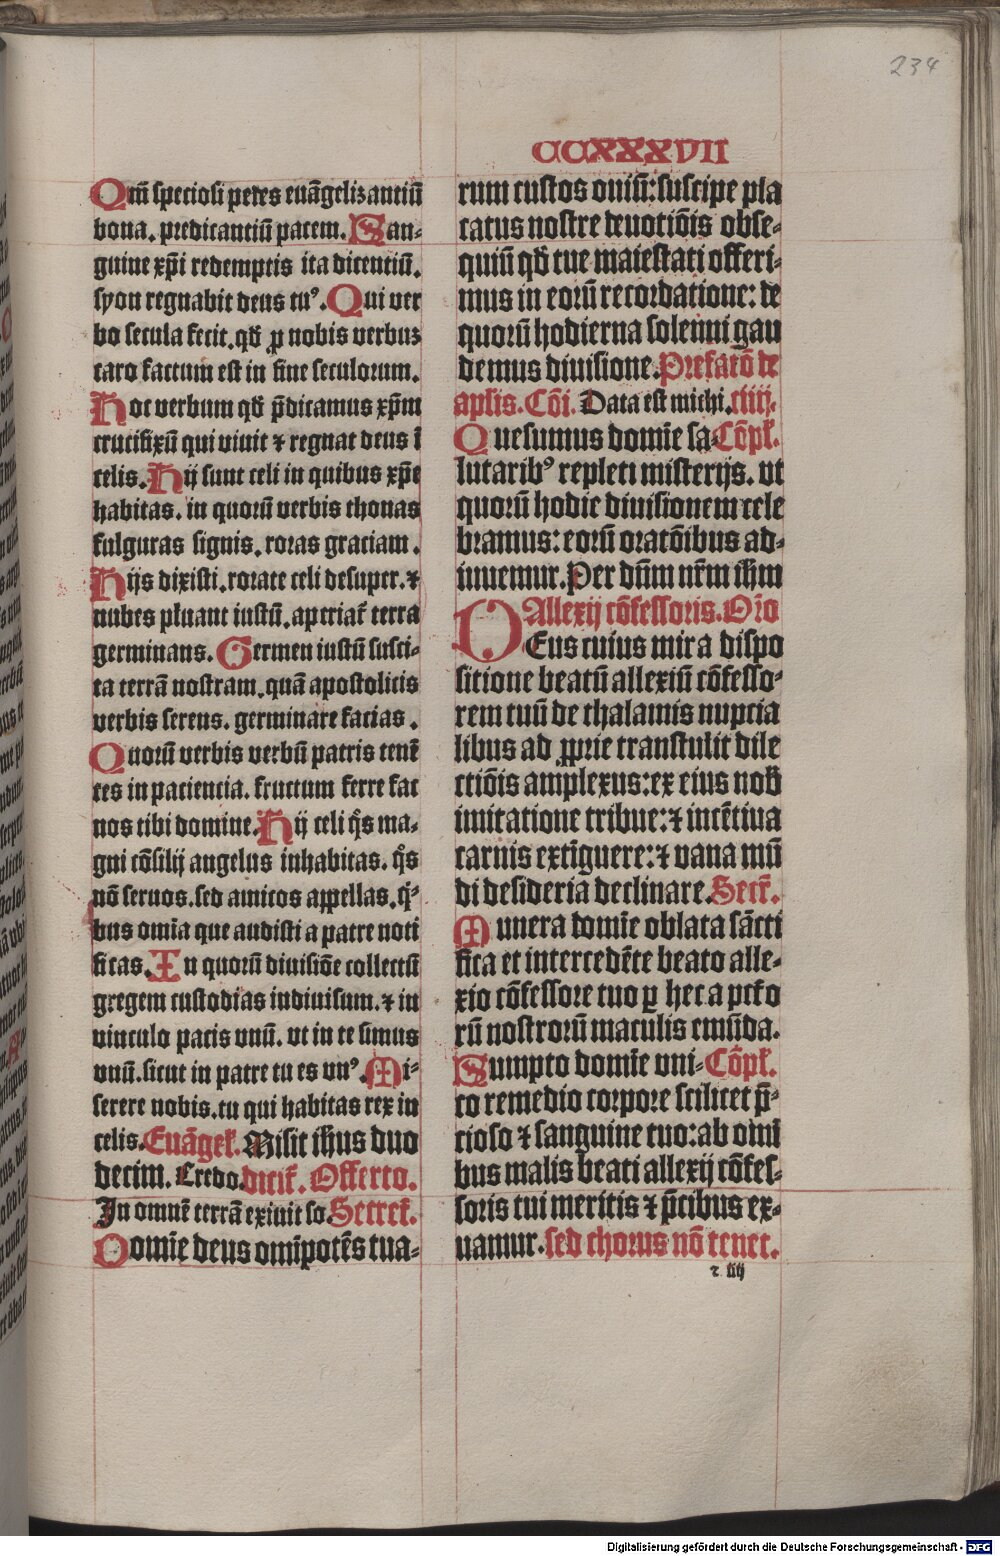 234
CCXXXVII
Qm̄ speciosi pedes euāgelizantiū
bona. predicantiū pacem. San-
guine xp̄i redemptis ita dicentiū.
syon regnabit deus tuꝰ. Qui ver
bo secula fecit. qd̄ ꝓ nobis verbuz
caro factum est in fine seculorum.
Hoc verbum qd̄ p̄dicamus xp̄m
crucifixū qui viuit ⁊ regnat deus ī
celis. Hij sunt celi in quibus xp̄e
habitas. in quorū verbis thonas
fulguras signis. roras graciam.
Hijs dixisti. rorate celi desuper. ⁊
nubes pluant iustū. aperiat̄ terra
germinans. Germen iustū susci-
ta terrā nostram. quā apostolicis
verbis serens. germinare facias.
Quorū verbis verbū patris tenē
tes in paciencia. fructum ferre fac
nos tibi domine. Hij celi q̄s ma-
gni cōsilij angelus inhabitas. q̄s
nō seruos. sed amicos appellas. q̄-
bus om̄ia que audisti a patre noti
ficas. In quorū diuisiōe collectū
gregem custodias indiuisum. ⁊ in
vinculo pacis vnū. vt in te simus
vnū. sicut in patre tu es vnꝰ. Mi-
serere nobis. tu qui habitas rex in
celis. Euāgel̄. Misit ih̄us duo
decim. Credo. dicit̄. Offerto.
In omnē terrā exiuit so. Secret̄.
Domīe deus omīpotēs tua-
rum custos ouiū: suscipe pla
catus nostre deuotiōis obse-
quiū qd̄ tue maiestati offeri-
mus in eorū recordatione: de
quorū hodierna solenni gau
demus diuisione. Prefatō de
ap̄lis. Cōi. Data est michi. cliij.
Quesumus domīe sa- Cōpl̄.
lutaribꝰ repleti misterijs. vt
quorū hodie diuisionem cele
bramus: eorū oratōibus ad-
iuuemur. Per dn̄m nr̄m ih̄m
Allexij cōfessoris. Or̄o
DEus cuius mira dispo
sitione beatū allexiū cōfesso-
rem tuū de thalamis nuptia
libus ad ꝓprie transtulit dile
ctiōis amplexus: ex eius nob̄
imitatione tribue: ⁊ incētiua
carnis extīguere: ⁊ vana mū
di desideria declinare. Secr̄.
Munera domīe oblata sācti
fica et intercedēte beato alle-
xio cōfessore tuo ꝑ hec a pct̄o
rū nostrorū maculis emūda.
Sumpto domīe vni- Cōpl̄.
co remedio corpore scilicet p̄-
cioso ⁊ sanguine tuo: ab omī
bus malis beati allexij cōfes-
soris tui meritis ⁊ p̄cibus ex-
uamur. sed chorus nō tenet.
⁊ iiij
Digitalisierung gefördert durch die Deutsche Forschungsgemeinschaft - DFG